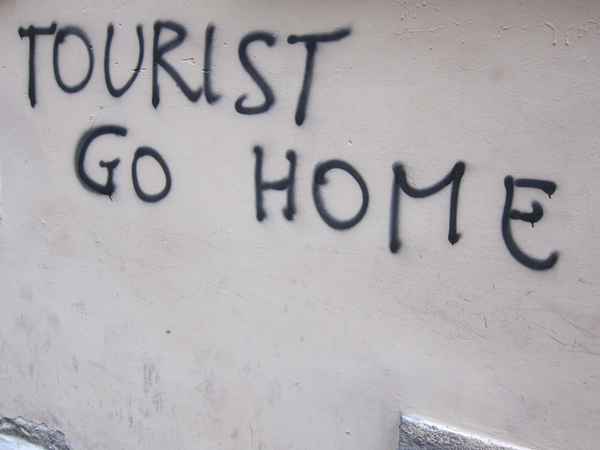 TOURIST
GO HOME